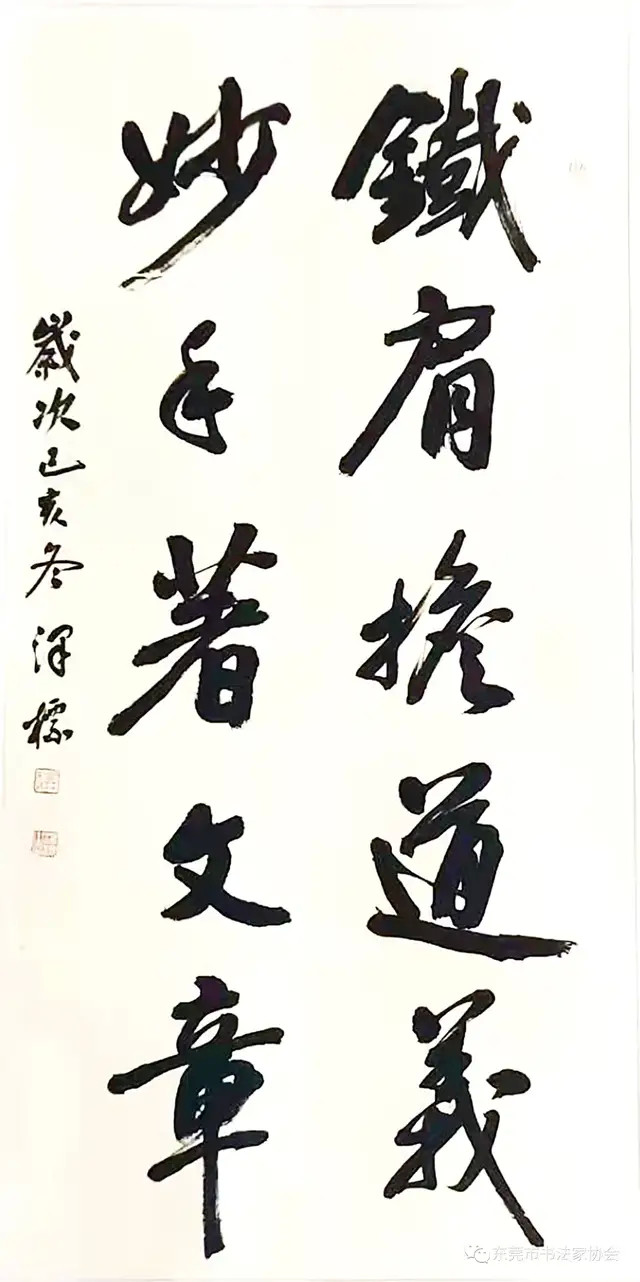 鐵肩擔道義
妙手著文章
歲次己亥冬澤標
东莞市书法家协会